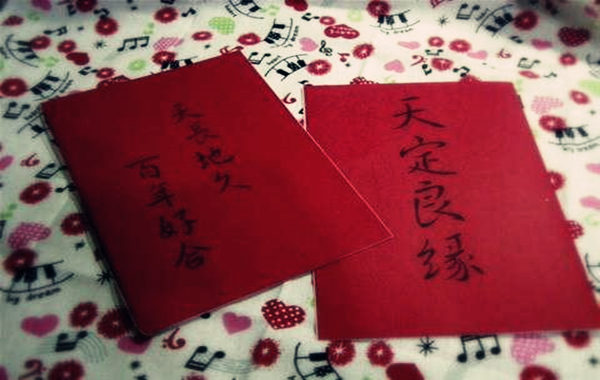 天長地久
百年好合
天定良缘
by dream
by dream